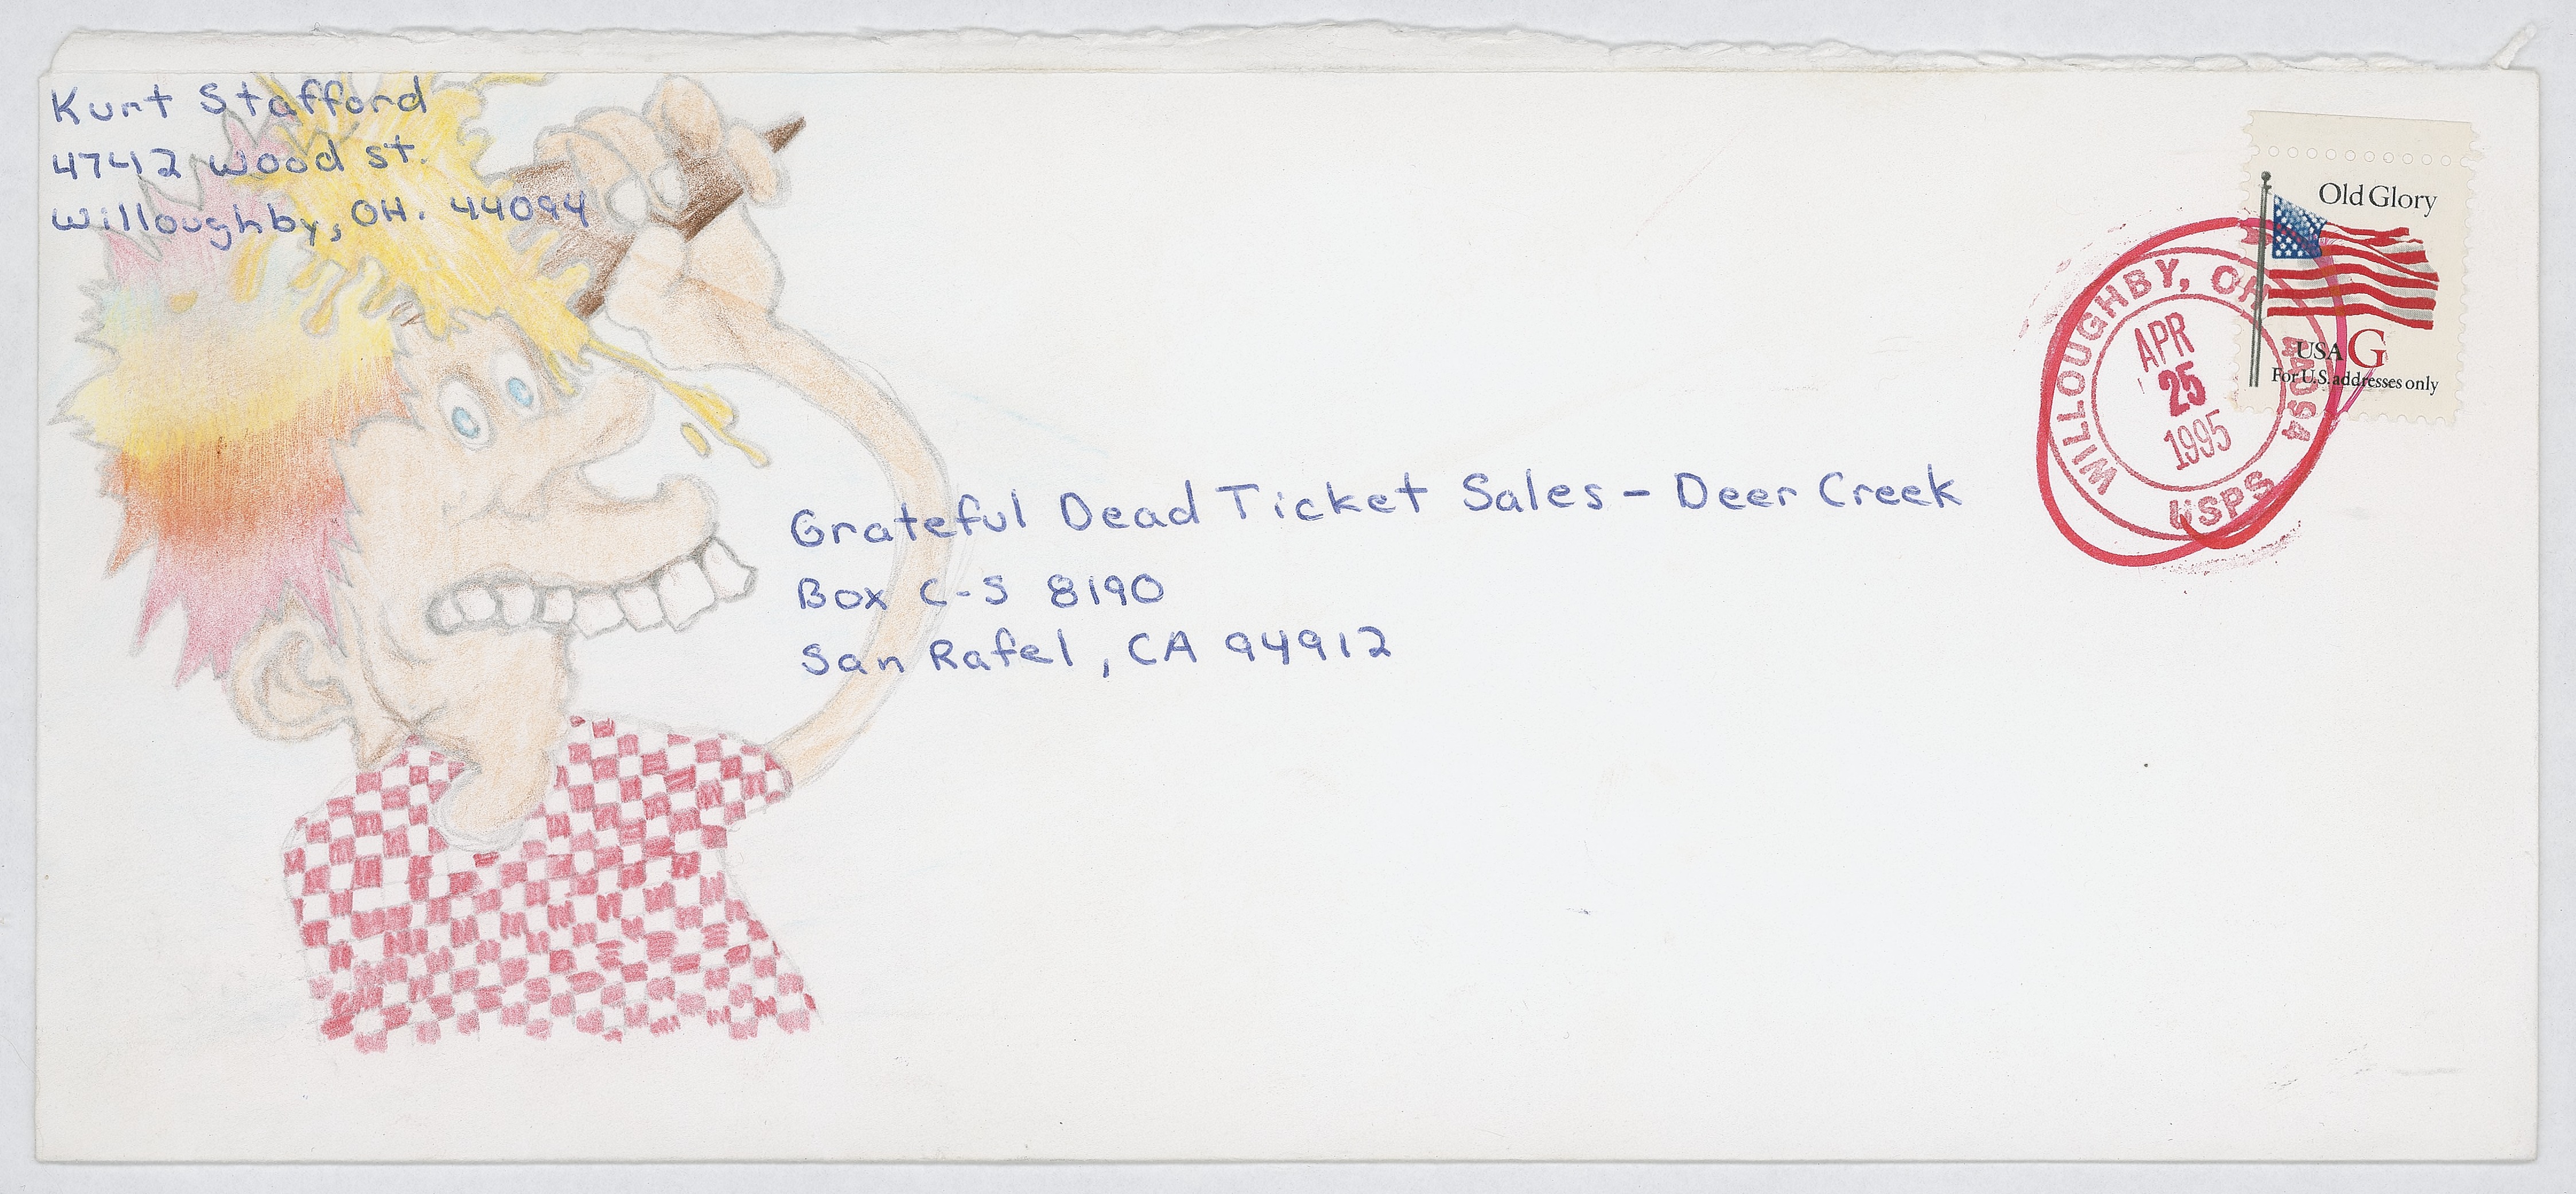 Kurt Stafford
47412 Wood St.
Willoughby, OH. 44094
Old Glory
USA G
For U.S. addresses only
WILLOUGHBY, OH
44094
USPS
APR
25
1995
Grateful Dead Ticket Sales - Deer Creek
Box C-S 8190
San Rafel, CA 94912